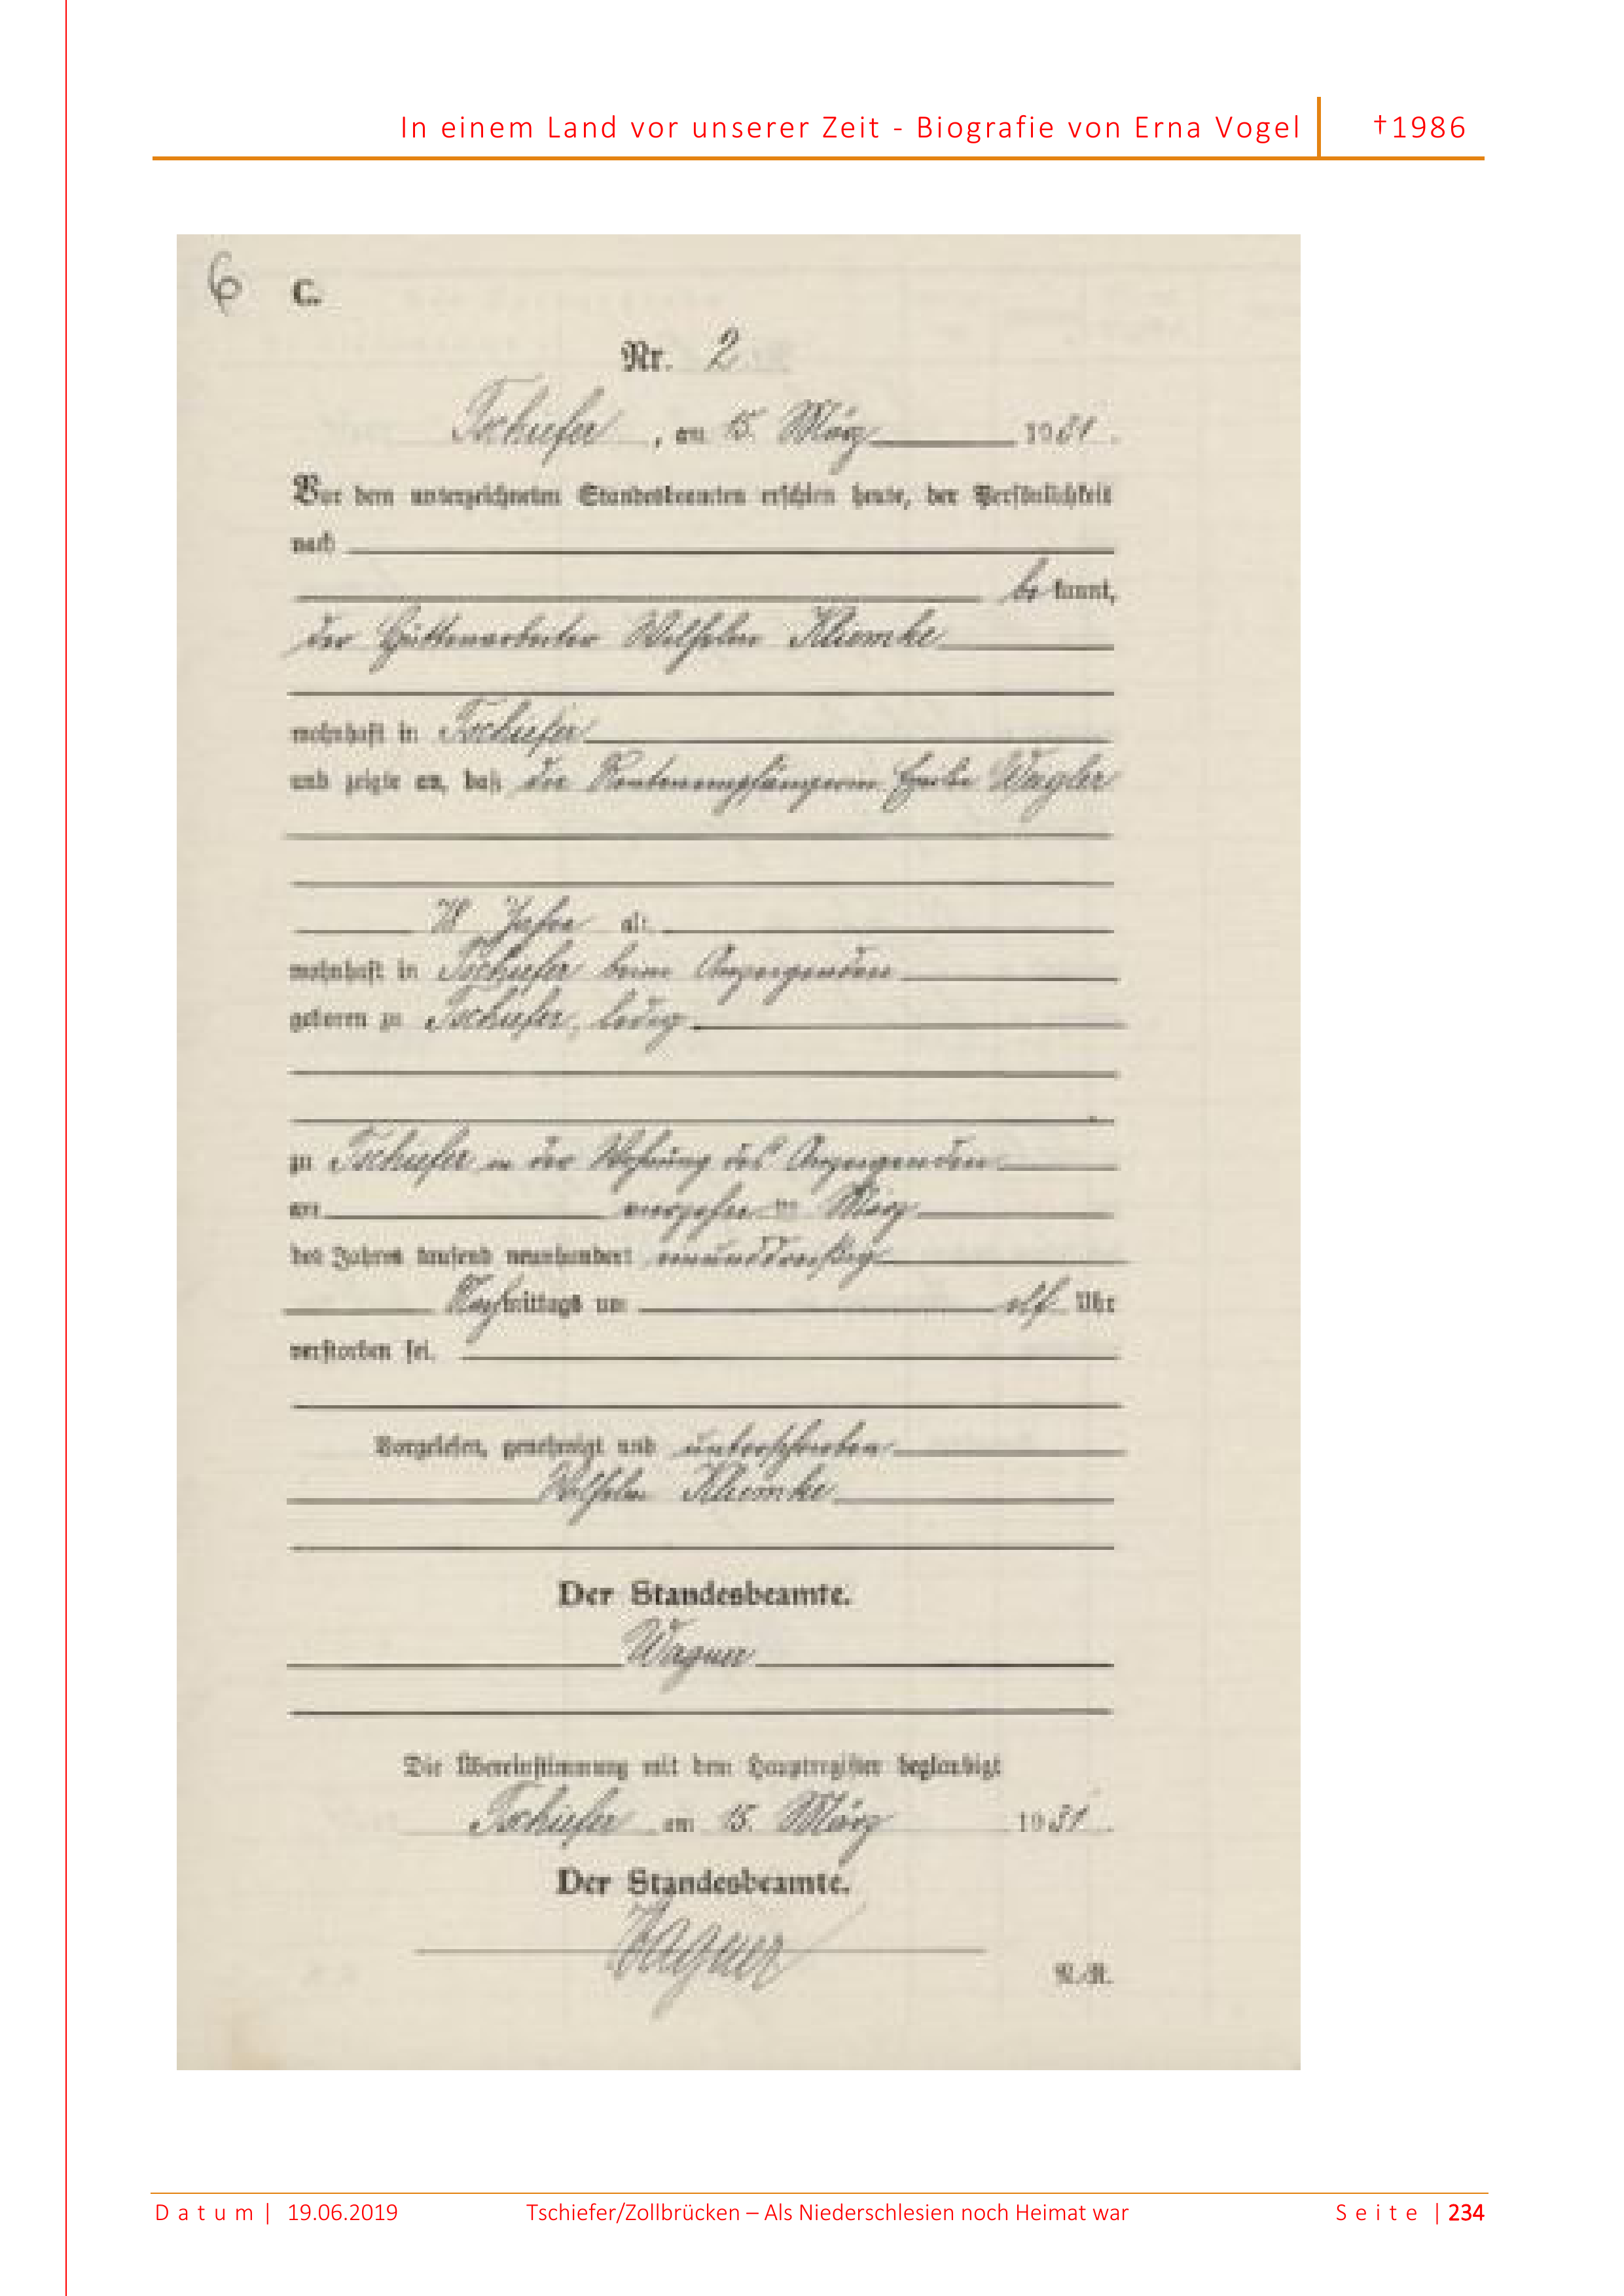 In einem Land vor unserer Zeit - Biografie von Erna Vogel †1986
6 C.
Nr. 2
Tschiefer, am 15. März 1931.
Vor dem unterzeichneten Standesbeamten erschien heute, der Persönlichkeit
nach
bekannt,
der Hüttenarbeiter Wilhelm Kliemke
wohnhaft in Tschiefer
und zeigte an, daß die Rentenempfängerin Wagler
78 Jahre alt
wohnhaft in Tschiefer beim Anzeigenden
geboren zu Tschiefer, ledig
zu Tschiefer in der Wohnung des Anzeigenden
am vierzehnten März
des Jahres tausend neunhundert einunddreißig
Nachmittags um elf Uhr
verstorben sei.
Vorgelesen, genehmigt und unterschrieben
Wilhelm Kliemke
Der Standesbeamte.
Wagner
Die Übereinstimmung mit dem Hauptregister beglaubigt
Tschiefer am 15. März 1931.
Der Standesbeamte.
Wagner
Datum | 19.06.2019 Tschiefer/Zollbrücken – Als Niederschlesien noch Heimat war Seite | 234